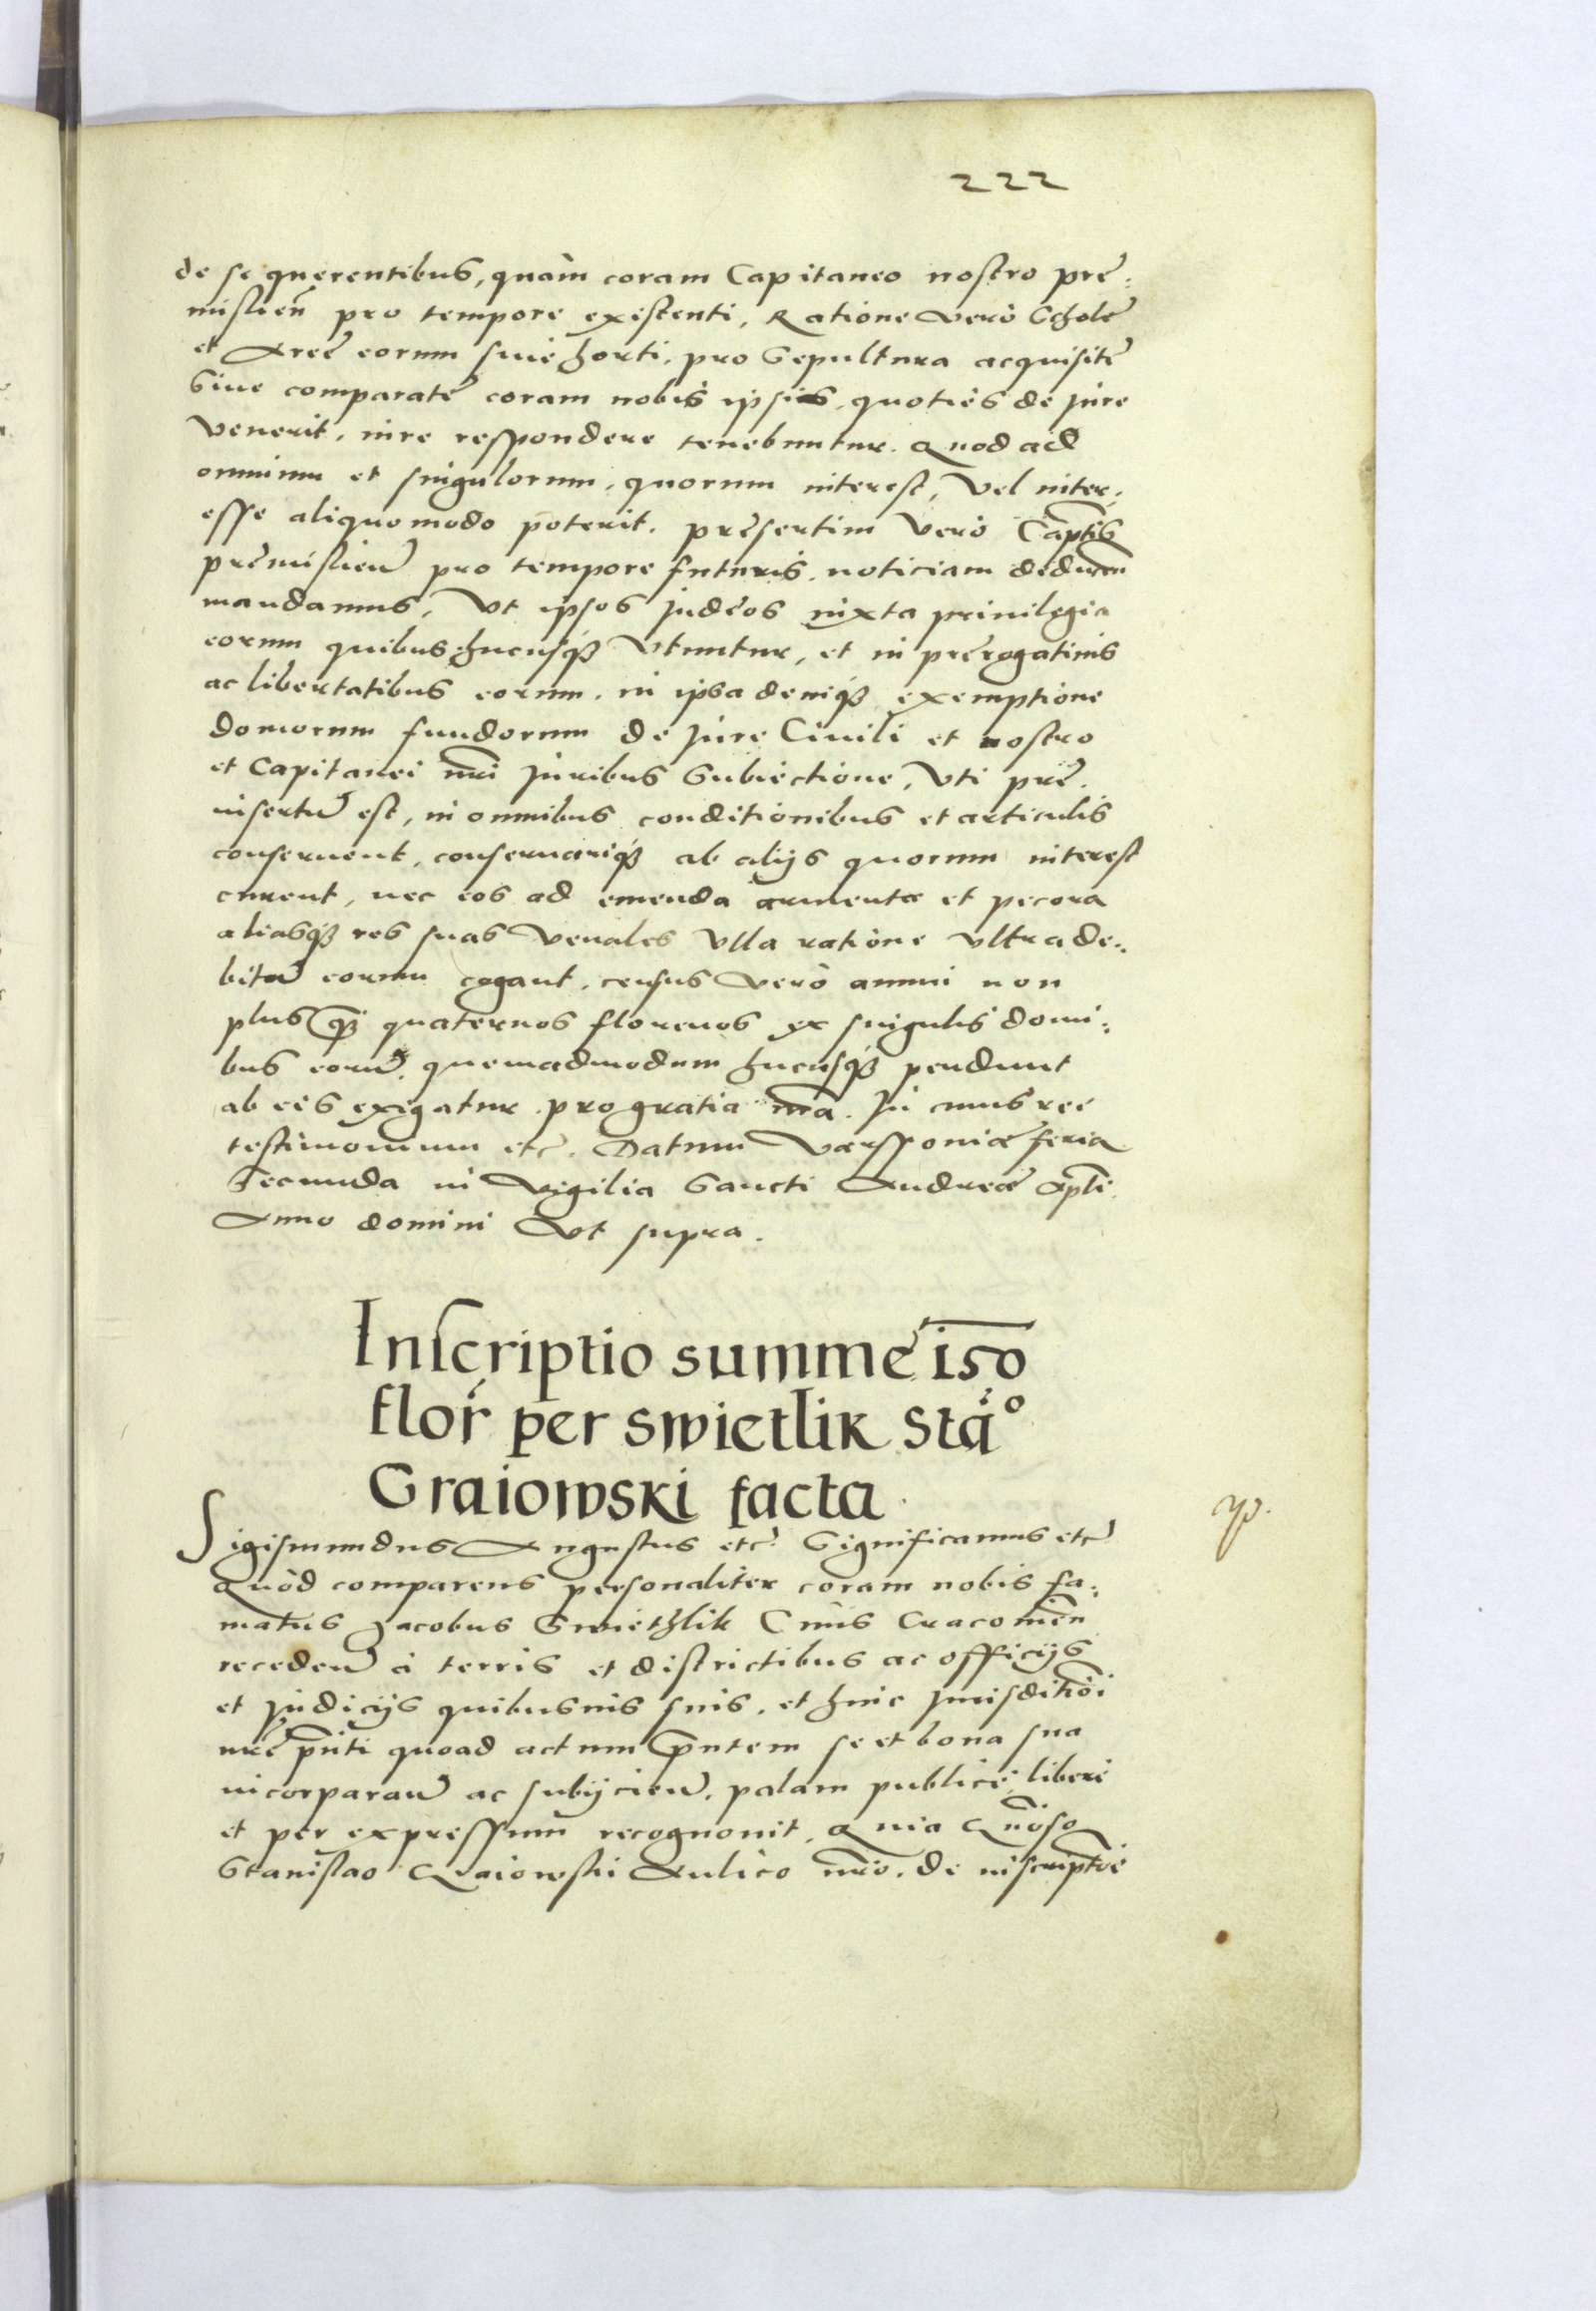 222
de se querentibus, quàm coram Capitaneo nostro prę:
mislien̄ pro tempore existenti, Ratione verò Scholę
et Areę eorum siue horti, pro Sepultura acquisitę
Siue comparatę coram nobis ipsis, quoties de Jure
venerit, iure respondere tenebuntur. Quod ad
omnium et singulorum, quorum interest, vel inter:
esse aliquomodo poterit, pręsertim verò Captis
pręmislien̄ pro tempore futuris, noticiam deducen
mandamus, Vt ipsos Judęos iuxta priuilegia
eorum quibus hucusq; Vtuntur, et in pręrogatiuis
ac libertatibus eorum, in ipsa deniq; exemptione
domorum fundorum de Jure Ciuili et nostro
et Capitanei nr̄i Juribus Subiectione, Vti prę:
insertū est, in omnibus conditionibus et articulis
conseruent, conseruariq; ab alijs quorum interest
curent, nec eos ad emenda armenta et pecora
aliasq; res suas Venales Vlla ratione vltra de:
bitū eorum cogant, census verò annui non
plus q̄; quaternos florenos ex singulis domi:
bus eorū, quemadmodum hucusq; pendunt
ab eis exigatur pro gratia nr̄a. In cuius rei
testimonium etc. Datum Varssouiæ feria
Secunda in Vigilia Sancti Andreæ Apl̄i
Anno domini Vt supra.
Inscriptio summę 150
flor̄ per Swietlik Sta͛º
Graiowski facta
Sigismundus Augustus etc Significamus etc
Quòd comparens personaliter coram nobis fa:
matus Jacobus Swiethlik Ciuis Cracouien̄
receden̄ à terris et districtibus ac officijs
et Judicijs quibusuis suis, et huic Jurisditioni
nr̄ę pn̄ti quoad actum pn̄tem se et bona sua
incorporan̄ ac subijcien̄, palam publicè liberè
et per expressum recognouit, Quia Gn̄oso
Stanislao Graiowski Aulico nr̄o, de inscriptōe